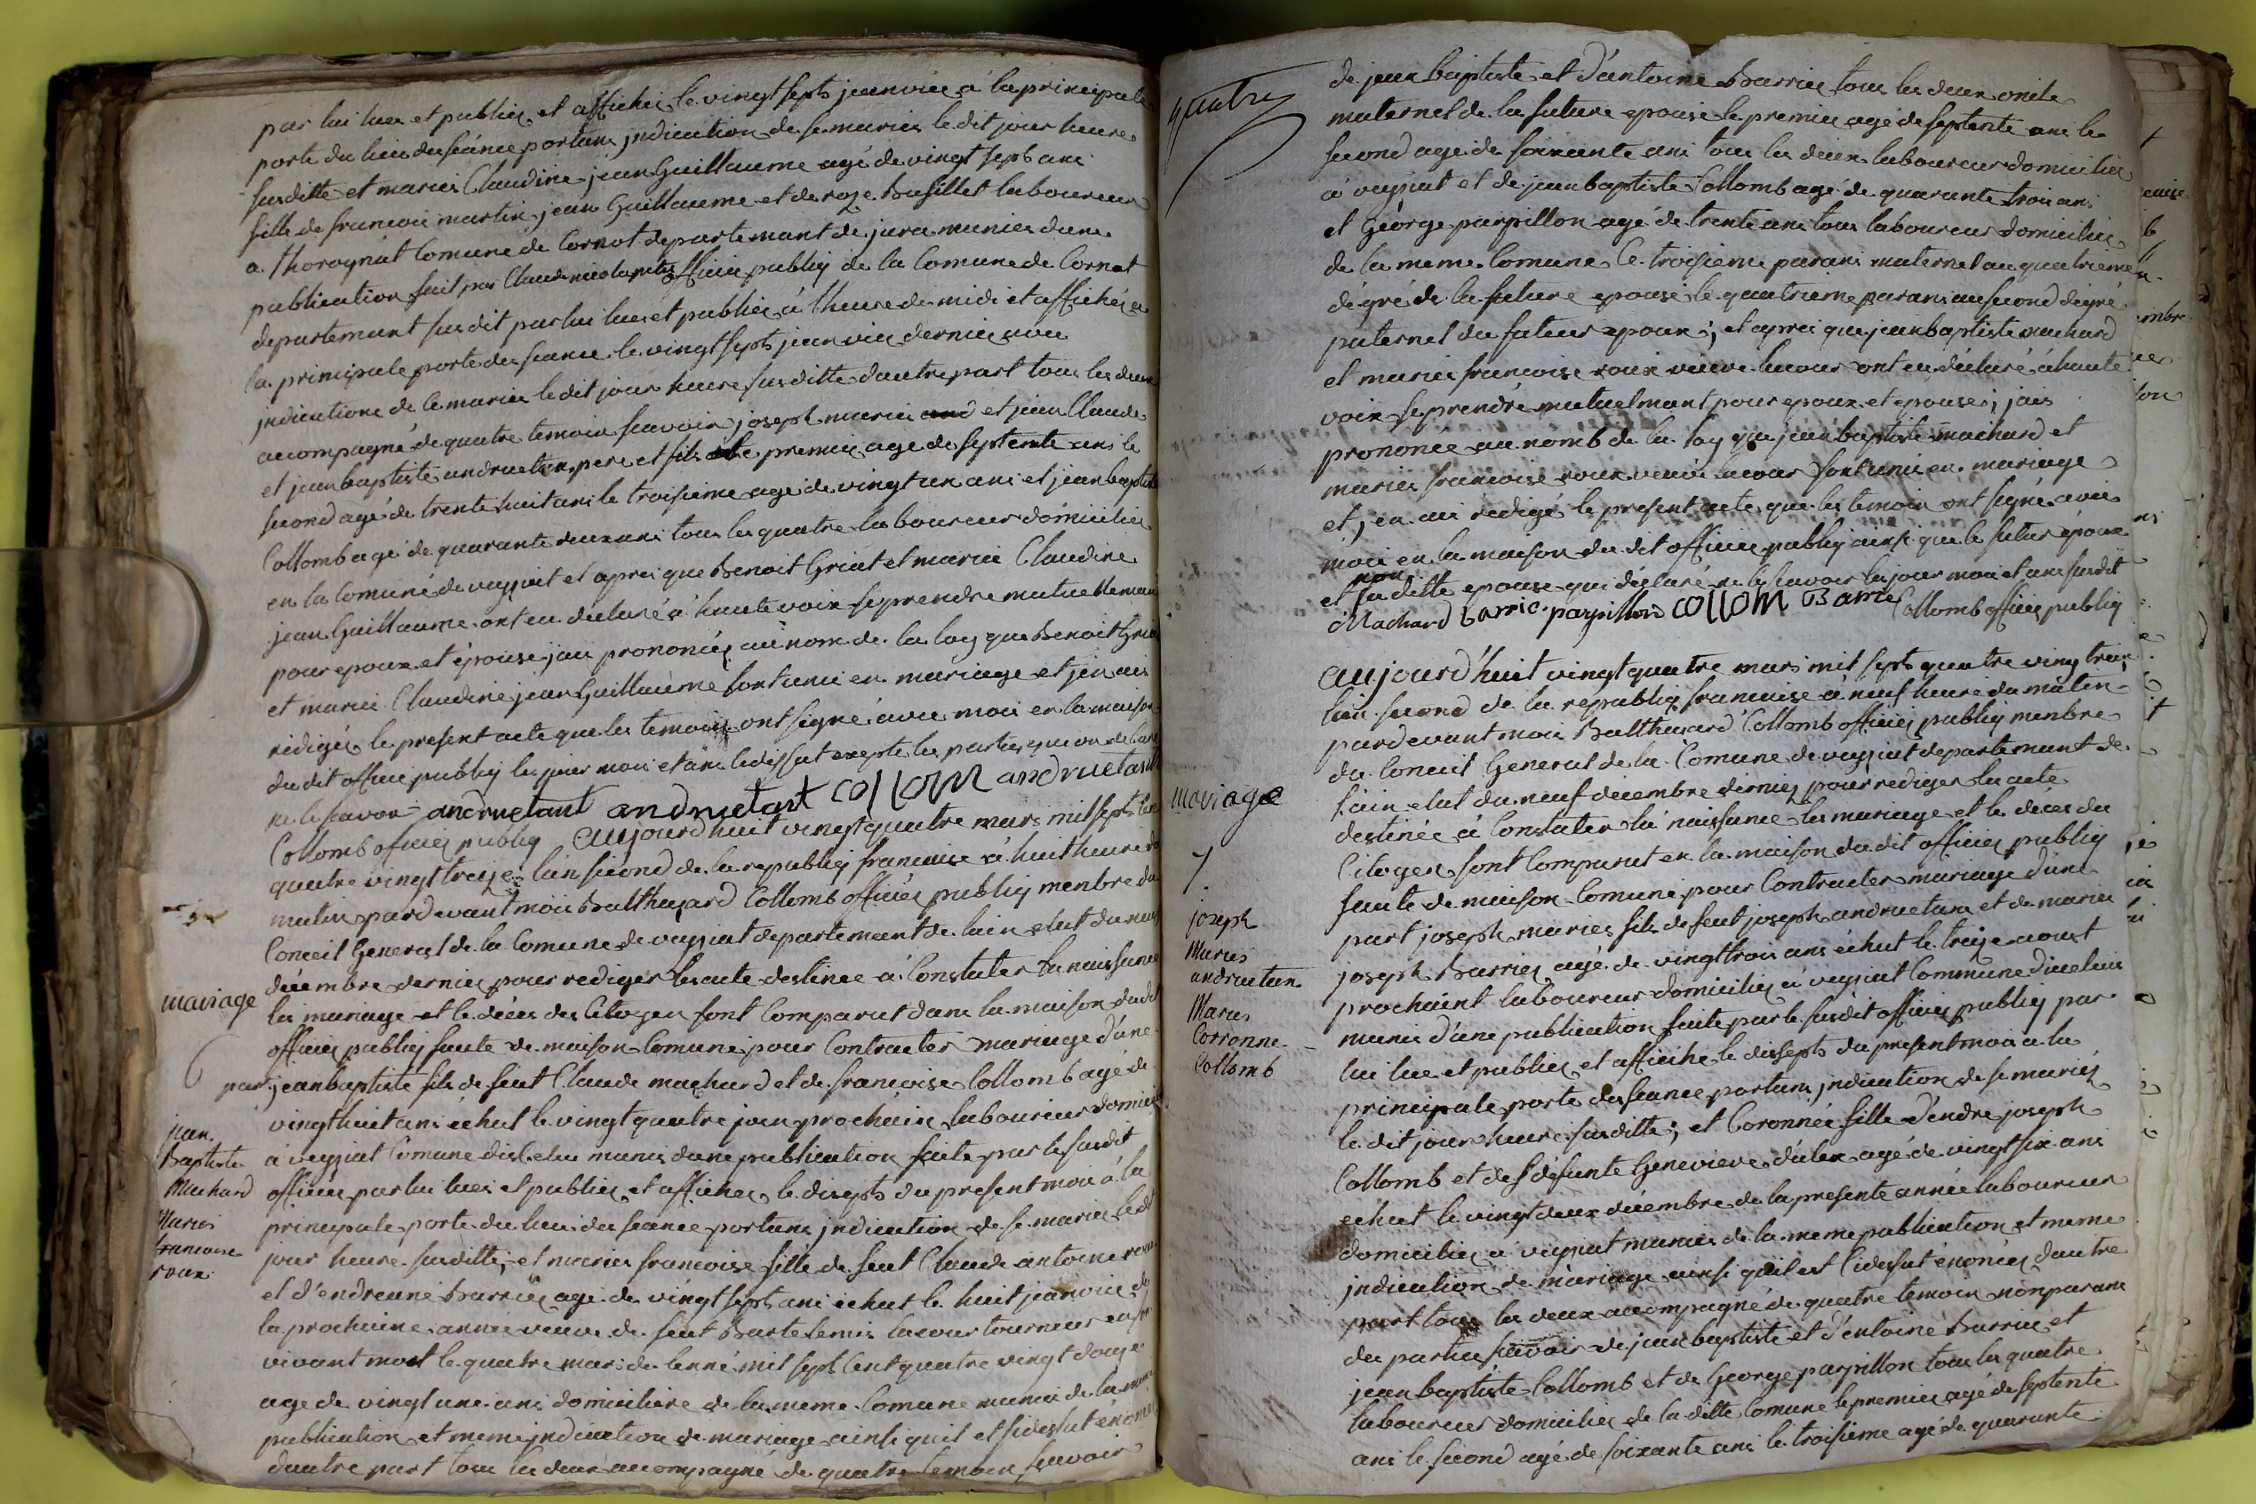 par lui lues et publiée et affichée le vingt sept jeanvier a la principale
porte du lieu du séance portans jndication de se marier le dit jour heure
susditte et marie Claudine jean Guillaume agé de vingt sept ans
fille de francoi martin jean Guillaume et de roze Busillet laboureur
a thorognat Comune de Cornot departemant de jura munier dune
publication fait par Claude officier publiq de la Comune de Cornot
departemant susdit par lui lue et publiée à lheure de midi et affichée a
la principale porte du séance le vingt sept jeanvier dernier avec
jndications de ce marier le dit jour heure susditte dautre part tous les deux
accompagné de quatre temoin scavoir joseph marie et jean Claude
et jean baptiste andruetan pere et fils le premier age de septente ans le
second agé de trente huit ans le troisieme age de vingt un ans et jean baptiste
Collomb agé de quarante deux ans tous les quatre laboureur domicilié
en la Comune de veyziat et apres que Benoit Griat et marie Claudine
jean Guillaume ont eu declaré a haute voix se prendre mutuellemant
pour epoux et épouse jai prononcé au nom de la loy que Benoit Griat
et marie Claudine jean Guillaume sont unie en mariage et jen ai
redigée le present acte que les temoins ont signé avec moi en la maison
du dit officier publiq les jour moi et an cidissut exepte les parties qui on declaré
ne le savoir andruetant andruetant collom andruetant
Collomb officier publiq aujourd'huit vingt quatre mars mil sept cent
quatre vingt treize lan second de la republiq francaise à huit heure du
matin pardevant moi Balthazard Collomb officier publiq menbre du
Conceil General de la Comune de veyziat departemant de lain elut du neuf
décembre dernier pour rediger les acte destinee a Constater la naissance
les mariage et le décés des Citoyen sont Comparut dans la maison du dit
officier publiq faute de maison Comune pour Contracter mariage d'une
mariage
6
part jean baptiste fils de feut Claude machard et de francoise Collomb agé de
vingt huit ans échut le vingt quatre juen prochain laboureur domicilié
jean
Baptiste
Machard
Marie
francoise
roux
à veyziat Comune dicelui munis dune publication faite par le susdit
officier par lui lues et publiée et affichée le disept du present moi à la
principale porte du lieu du séance portans jndication de se marier le dit
jour heure susditte; et marie francoise fille de feut Claude antoine roux
et d'endreune Barrier age de vingt sept ans échut le huit jeanvier de
la prochaine année veuve de feut Bartelemis lacour tourneur en son
vivant mort le quatre mars de lenné mil sept Cent quatre vingt douze
age de vingt une ans domiciliere de la meme Comune munie de la meme
publication et meme jndication de mariage ainsi quil et sidessut énoncé
dautre part tous les deux accompagné de quatre temoin scavoir
de jean baptiste et d'antoine Barrier tous les deux oncle
maternel de la future epouse le premier agé de septente ans le
second age de soixante ans tous les deux laboureur domicilié
a veyziat et de jean baptiste Collomb agé de quarante trois ans
et George parpillon agé de trente ans tous laboureur domicilié
de la meme Comune le troisieme parans maternel au quatrieme
dégré de la future epouse le quatrieme parans au second degré
paternel du futeur epoux; et aprés que jean baptiste machard
et marie francoise roux veuve lacour ont eu déclaré à haute
voix se prendre mutuelmant pour epoux et epouse; jais
prononcé au nomb de la loy que jean baptiste machard et
marie francoise roux veuve lacour sont unie en mariage
et j'en ai redigé le present acte que les temoin ont signé avec
moi en la maison du dit officier publiq ainsi que le futur époux
et non saditte epouse qui déclaré ne le scavoir les jour moi et ans susdit
Machard Barrie parpillon collom Barrie Collomb officier publiq
aujourd'huit vingt quatre mars mil sept quatre vingt treize
lan second de la republiq francaise à neuf heure du matin
pardevant moi Balthazard Collomb officier publiq menbre
du Conceil General de la Comune de veyziat departemant de
mariage
lain elut du neuf décembre dernier pour rediger les acte
destinée à Constater la naissance les mariage et le décés des
7
Citoyen sont Comparut en la maison du dit officier publiq
faute de maison Comune pour Contracter mariage d'une
joseph
Marie
andruetan
Marie
Coronne
Collomb
part joseph marie fils de feut joseph andruetan et de marie
joseph Barrier agé de vingt trois ans échut le treize aoust
prochaint laboureur domicilié à veyziat Commune dicelui
munie d'une publication faite par le susdit officier publiq par
lui lue et publiée et affiché le disept du present moi a la
principale porte du séance portans jndication de se marier
le dit jour heure susditte; et Coronnée fille d'endre joseph
Collomb et de defunte Genevieve agé de vingt six ans
echut le vingt deux décembre de la presente année laboureur
domicilié à veyziat munie de la meme publication et meme
jndication de mariage ainsi quil est Cidessut énoncée dautre
part tous les deux accompagné de quatre temoin non parans
des parties scavoir de jean baptiste et d'entoine Barrier et
jean baptiste Collomb et de George parpillon tous les quatre
laboureur domicilié de la ditte Comune le premier agé de septente
ans le second agé de soixante ans le troisieme agé de quarante